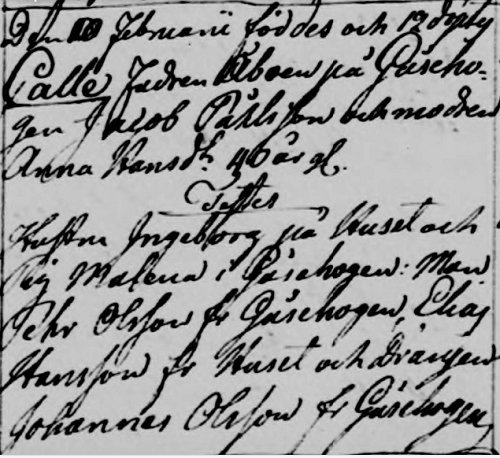 Den 10 Februarii föddes och 12 döptes
Calle Fadren Åboen på Gåseho-
gen Jacob Pålsson och modren
Anna Hansdr. 40 år gl.
Testes
Hustru Ingeborg på Huset och
Pig Malena i Gåsehogen: Män
Pehr Olsson fr Gåsehogen, Elias
Hansson fr Huset och Drängen
Johannes Olsson fr Gåsehogen